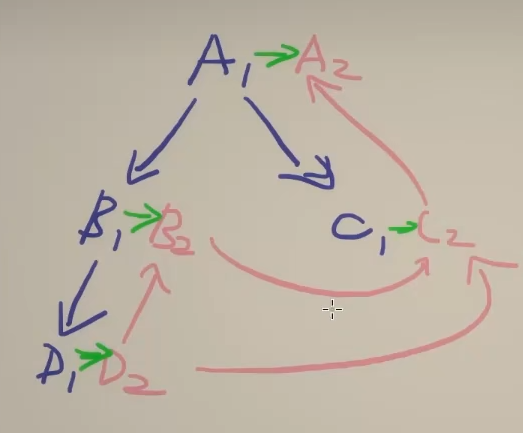 A₁ A₂
B₁ B₂ C₁ C₂
D₁ D₂